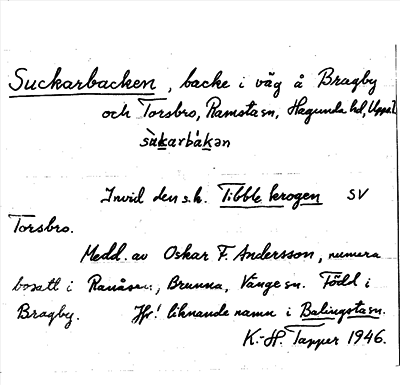 Suckarbacken, backe i väg å Bragby
och Torsbro, Ramsta sn, Hagunda hd, Uppl.
sùkarbàkən
Invid den s.k. Tibble krogen SV
Torsbro.
Medd. av Oskar F. Andersson, numera
bosatt i Ranåsen, Brunna, Vänge sn. Född i
Bragby. Jfr! liknande namn i Balingsta sn.
K.-H. Tapper 1946.